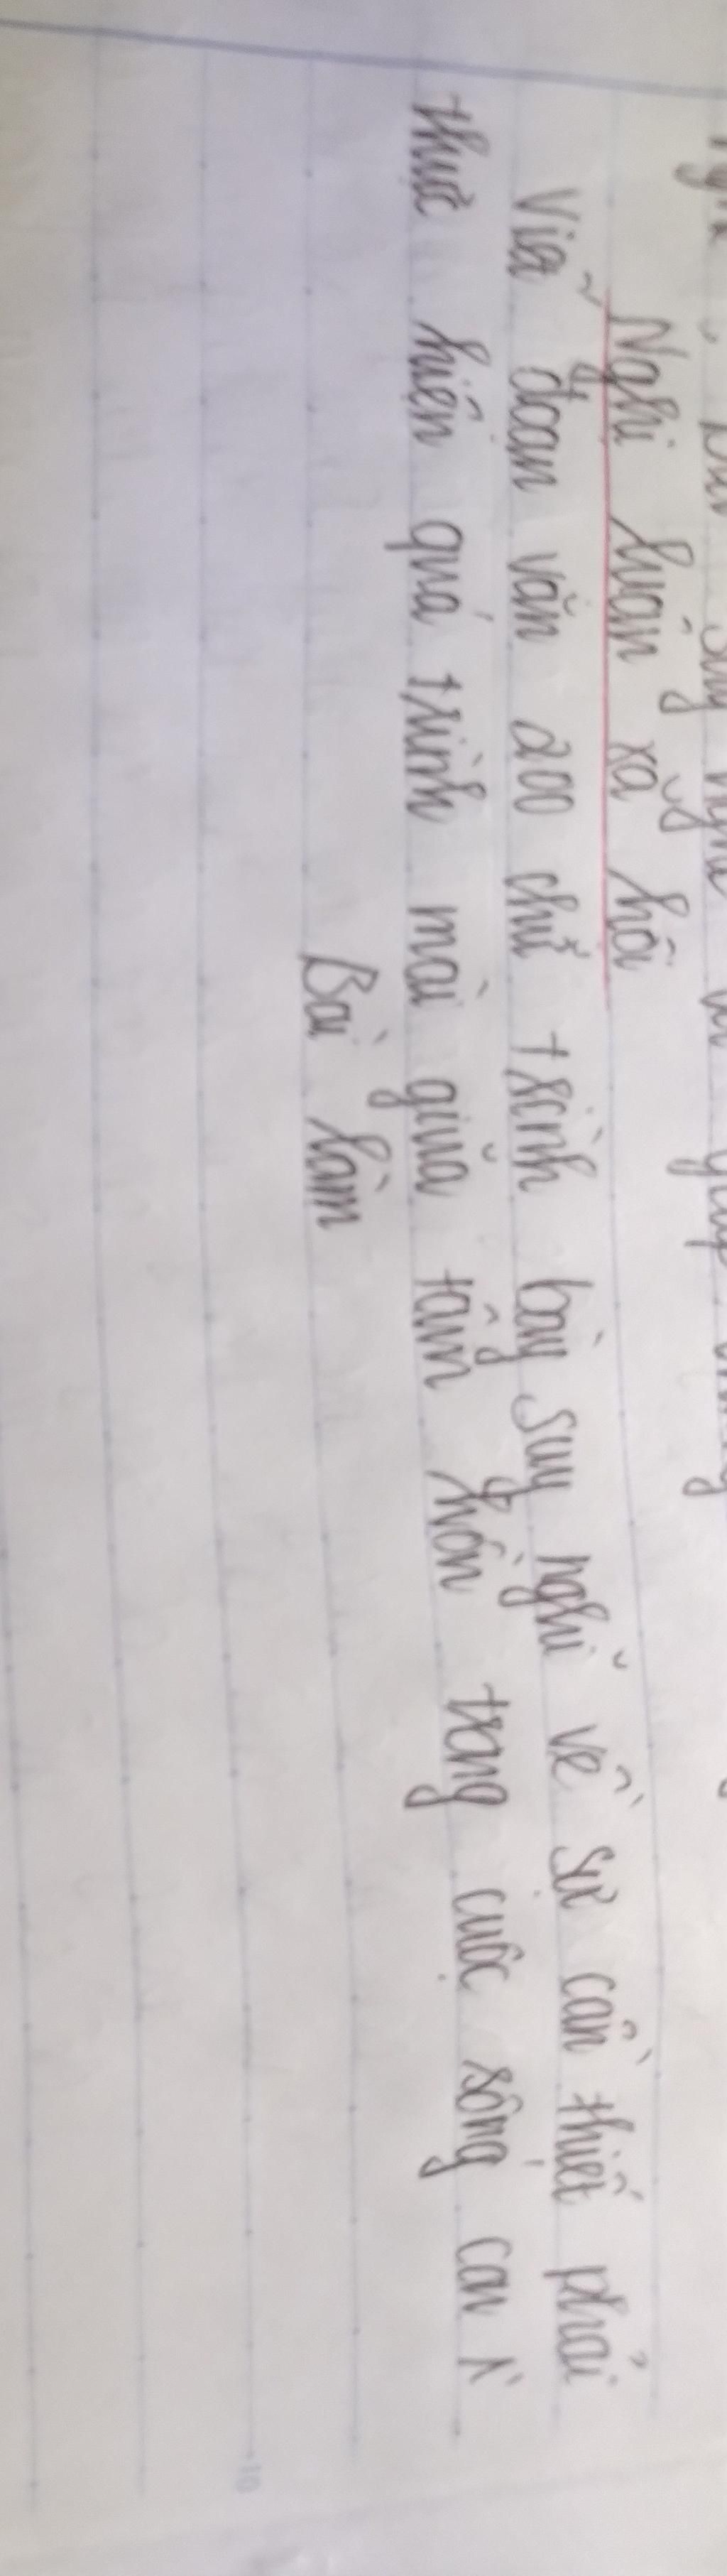 Nghị luận xã hội
Viết đoạn văn 200 chữ trình bày suy nghĩ về sự cần thiết phải
thực hiện quá trình mài giũa tâm hồn trong cuộc sống con
Bài làm
10